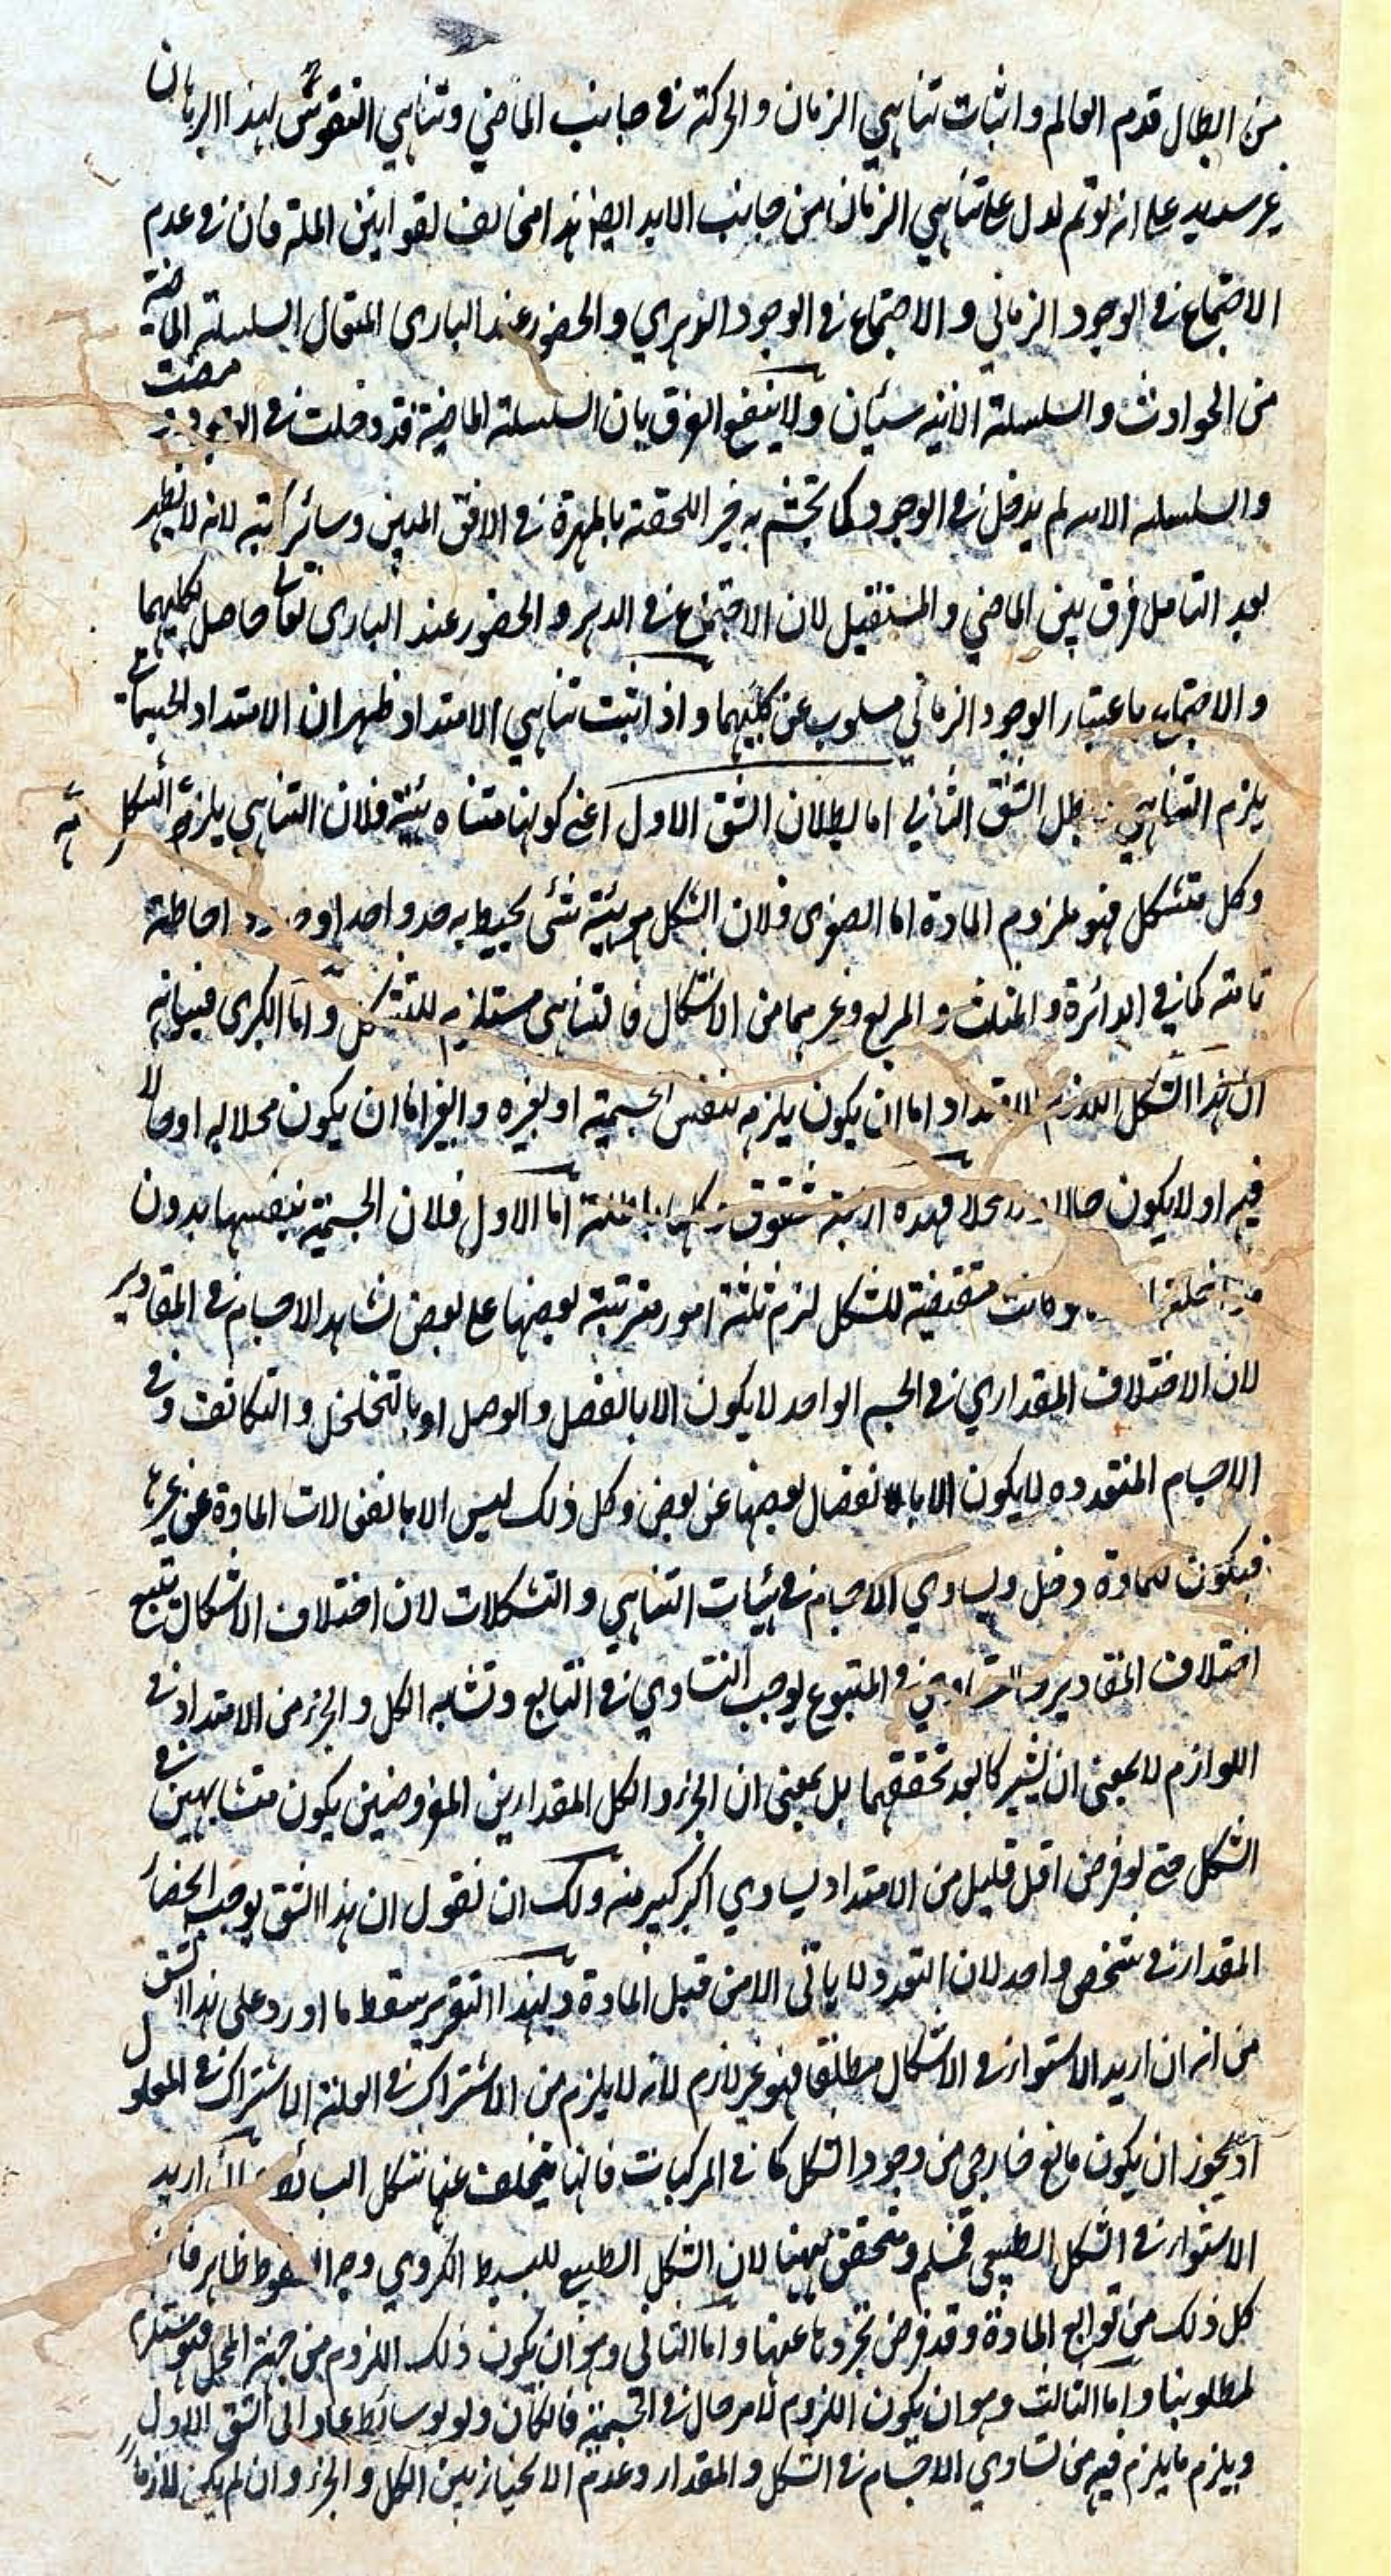 من ابطال قدم العالم واثبات تناهي الزمان والحركة في جانب الماضي وتناهي النفوس بهذا البرهان
غير سديد على انه لو تم لدل على تناهي الزمان من جانب الابد ايضا هذا مخالف لقوانين الملة فان في عدم
الاجتماع في الوجود الزماني والاجتماع في الوجود الدهري والحضور عند الباري المتعال السلسلة الماضية
من الحوادث والسلسلة الاتية سيان ولا ينفع الفرق بان السلسلة الماضية قد دخلت في الوجود ومضت
والسلسلة الاتية لم يدخل في الوجود كما تجشم به خير اللحقة بالمهرة في الافق المبين وسائر كتبه لانه لا يظهر
بعد التامل فرق بين الماضي والمستقبل لان الاجتماع في الدهر والحضور عند الباري تعالى حاصل لكليهما
والاجتماع باعتبار الوجود الزماني مسلوب عن كليهما واذ اثبت تناهي الامتداد ظهر ان الامتداد الجسماني
يلزم التناهي بطل الشق الثاني اما بطلان الشق الاول اعني كونها متناهية فلان التناهي يلزمه الشكل
وكل متشكل فهو ملزوم المادة اما الصغرى فلان الشكل هو هيئة شئ يحيط به حد واحد او حدود احاطة
تامة كما في الدائرة والمثلث والمربع وغيرهما من الاشكال فالتناهي مستلزم للتشكل واما الكبرى فبيانه
ان هذا الشكل اللازم للامتداد اما ان يكون يلزمه بنفس الجسمية او بغيره والغير اما ان يكون محلا له او حالا
فيه او لا يكون حالا ولا محلا فهذه اربعة شقوق وكلها باطلة اما الاول فلان الجسمية بنفسها بدون
مداخلة لو كانت مقتضية للشكل لزم ثلثة امور مترتبة بعضها على بعض تشابه الاجسام في المقادير
لان الاختلاف المقداري في الجسم الواحد لا يكون الا بالفصل والوصل او بالتخلخل والتكاثف وفي
الاجسام المتعدده لا يكون الا بانفصال بعضها عن بعض وكل ذلك ليس الا بانفعالات المادة عن غيرها
فيكون للمادة دخل ويساوي الاجسام في هيئات التناهي والتشكلات لان اختلاف الاشكال يتبع
اختلاف المقادير والتساوي في المتبوع يوجب التساوي في التابع وتشابه الكل والجزء من الامتداد في
اللوازم لا بمعنى ان يشتركا بعد تحققهما بل بمعنى ان الجزء والكل المقدارين المفروضين يكون متشابهين في
الشكل حتى لو فرض اقل قليل من الامتداد يساوي اكبر كبير منه ولك ان تقول ان هذا الشق يوجب انحصار
المقدار في شخص واحد لان التعدد لا ياتى الا من قبل المادة وبهذا التقرير سقط ما اورد على هذا الشق
من انه ان اريد الاستواء في الاشكال مطلقا فهو غير لازم لانه لا يلزم من الاشتراك في العلة الاشتراك في المعلول
اذ يجوز ان يكون مانع خارجي من وجود الشكل كما في المركبات فانها يتخلف عنها شكل البسائط وان اريد
الاستواء في الشكل الطبيعي فمسلم ومتحقق ههنا لان الشكل الطبيعي للبسيط الكروي وجه السقوط ظاهر فان
كل ذلك من توابع المادة وقد فرض تجردها عنها واما الثاني وهو ان يكون ذلك اللزوم من جهة المحل فهو مستلزم
لمطلوبنا واما الثالث وهو ان يكون اللزوم لامر حال في الجسمية فان كان ولو بوسائط عاد الى الشق الاول
ويلزم ما يلزم فيه من تساوي الاجسام في الشكل والمقدار وعدم الانحياز بين الكل والجزء وان لم يكن لازما